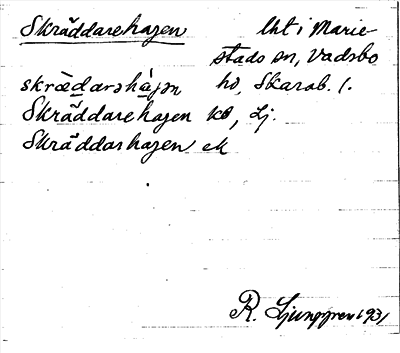 Skräddarehagen lht i Marie-
stads sn, Vadsbo
skrædarəhàgən hd, Skarab. l.
Skräddarehagen kb, Lj.
Skräddarhagen ek
R. Ljunggren 1931